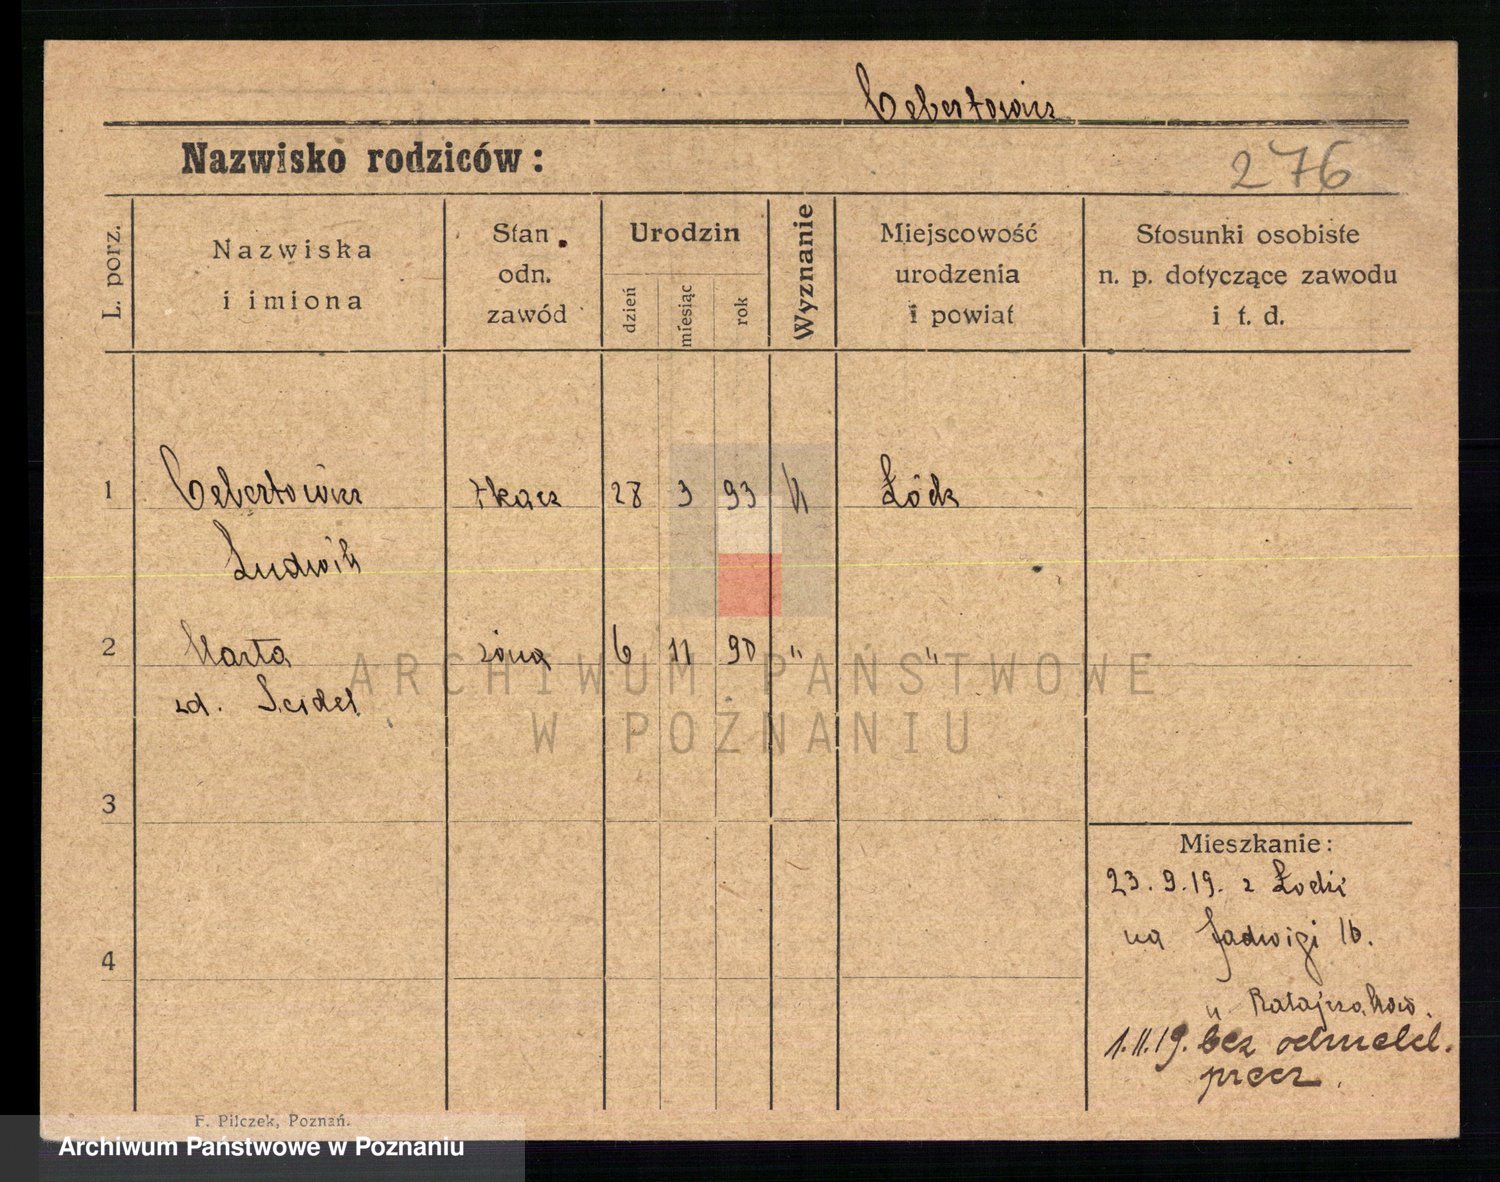 Cebertowicz
Nazwisko rodziców:
276
L. porz.
Nazwiska
i imiona
Stan
odn.
zawód
Urodzin
dzień
miesiąc
rok
Wyznanie
Miejscowość
urodzenia
i powiat
Stosunki osobiste
n. p. dotyczące zawodu
i t. d.
1 Cebertowicz tkacz 28 3 93 Łódz
Ludwik
2 Marta żona 6 11 90 " "
zd. Seidel
ARCHIWUM PAŃSTWOWE
W POZNANIU
3
4
Mieszkanie:
23.9.19. z Łodzi
na Jadwigi 16.
u Ratajczaków.
1.11.19. bez odmeld.
precz.
F. Pilczek, Poznań.
Archiwum Państwowe w Poznaniu